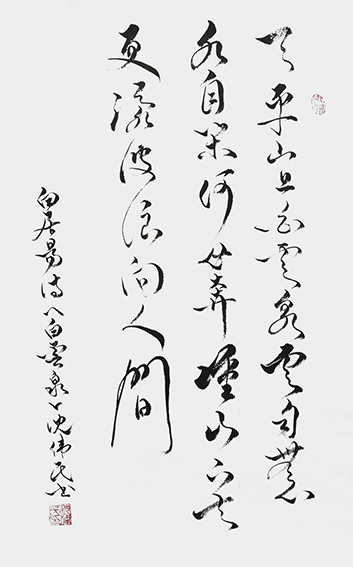 天平山上白雲泉雲自無心
水自閑何必奔衝山下去
更添波浪向人間
白居易诗〈白雲泉〉沈伟民书